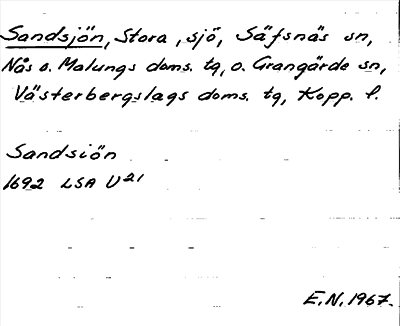 Sandsjön, Stora, sjö, Säfsnäs sn,
Nås o. Malungs doms. tg, o. Grangärde sn,
Västerbergslags doms. tg, Kopp. l.
Sandsiön
1692 LSA U21
E.N. 1967.